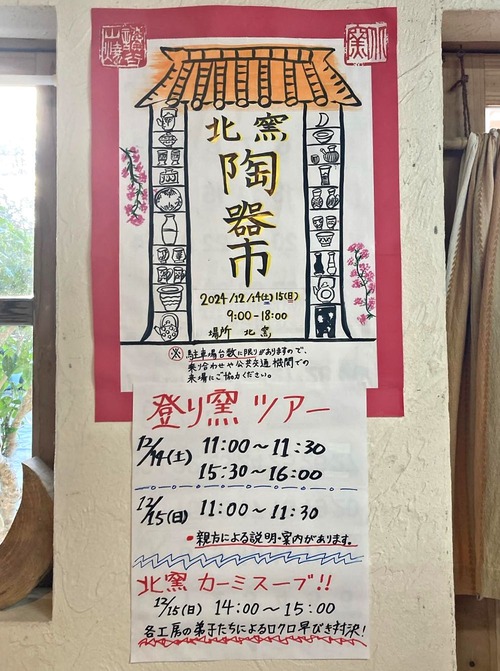 北窯
陶器市
2024/12/14(土)15(日)
9:00-18:00
場所 北窯
※駐車場台数に限りがありますので、
乗り合わせや公共交通機関での
来場にご協力ください。
登り窯ツアー
12/14(土) 11:00〜11:30
15:30〜16:00
12/15(日) 11:00〜11:30
•親方による説明・案内があります。
北窯 カーミスーブ!!
12/15(日) 14:00〜15:00
各工房の弟子たちによるロクロ早びき対決!